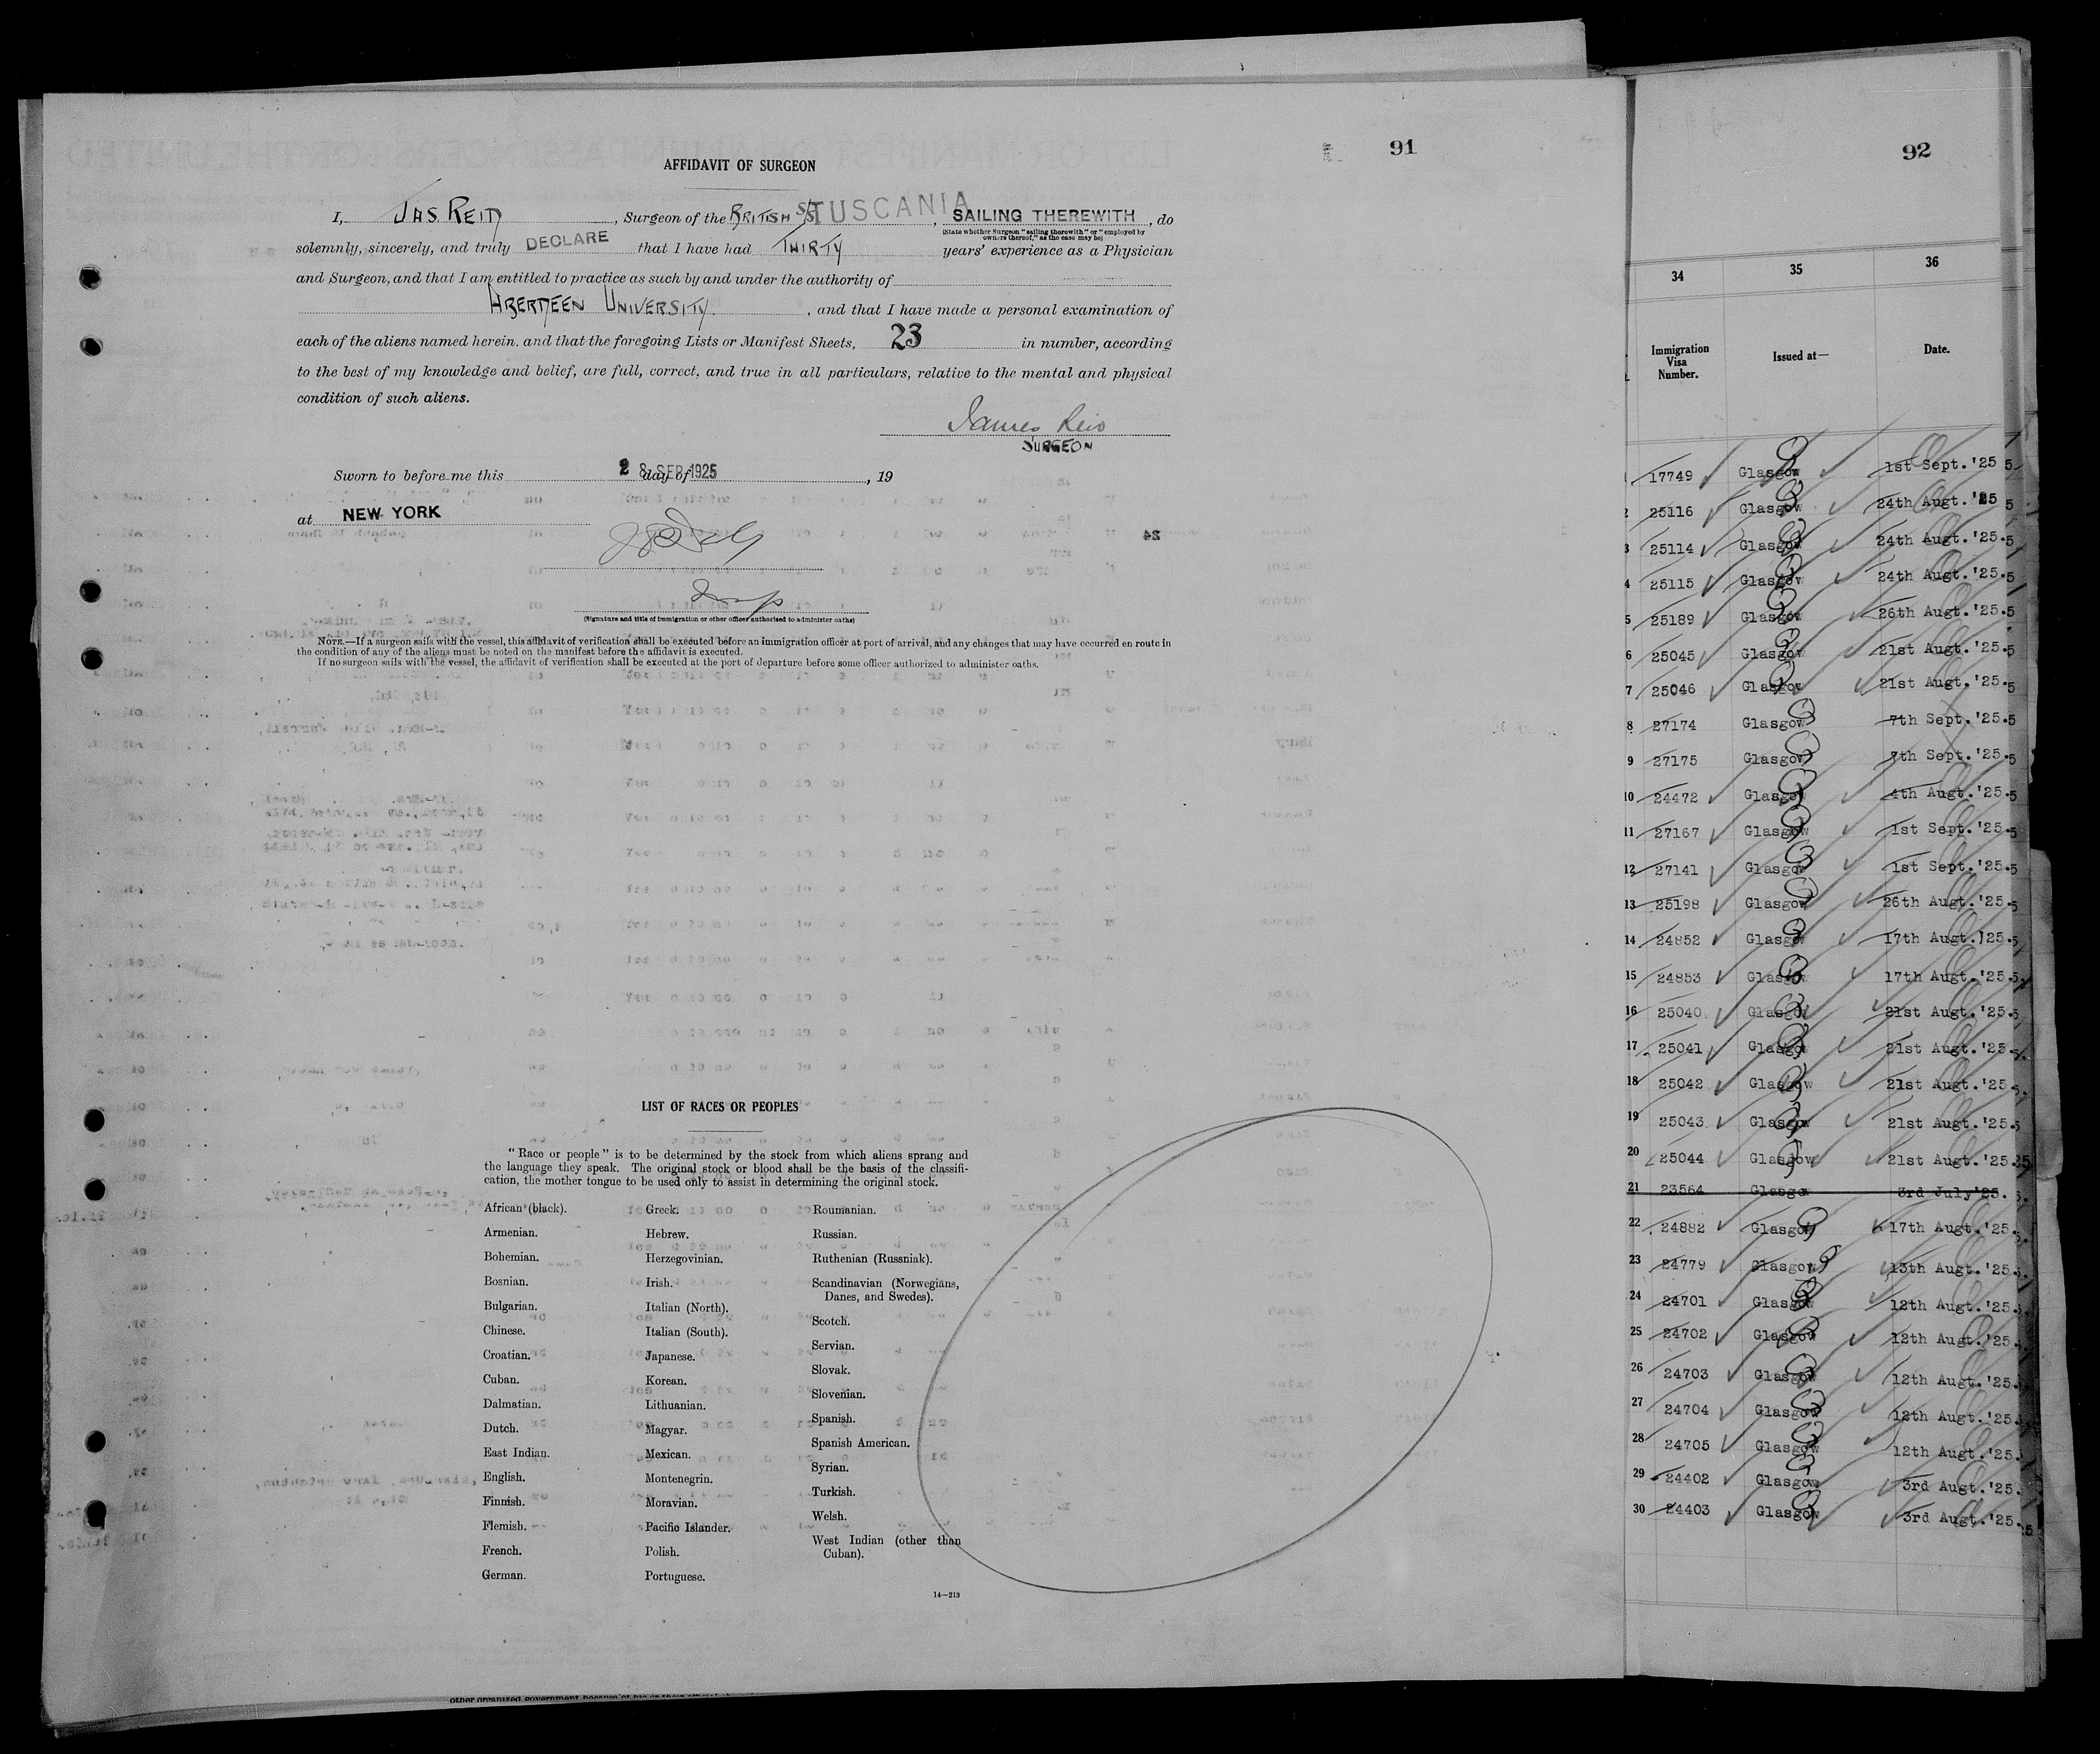 91
AFFIDAVIT OF SURGEON
I, JAS. REID, Surgeon of the BRITISH S/S TUSCANIA, SAILING THEREWITH, do
(State whether Surgeon "sailing therewith" or "employed by
owners thereof," as the case may be)
solemnly, sincerely, and truly DECLARE that I have had THIRTY years' experience as a Physician
and Surgeon, and that I am entitled to practice as such by and under the authority of
ABERDEEN UNIVERSITY., and that I have made a personal examination of
each of the aliens named herein. and that the foregoing Lists or Manifest Sheets, 23 in number, according
to the best of my knowledge and belief, are full, correct, and true in all particulars, relative to the mental and physical
condition of such aliens.
James Reid
SURGEON
Sworn to before me this 28 SEP 1925 day of , 19
at NEW YORK
Insp
(Signature and title of immigration or other officer authorized to administer oaths)
NOTE.—If a surgeon sails with the vessel, this affidavit of verification shall be executed before an immigration officer at port of arrival, and any changes that may have occurred en route in
the condition of any of the aliens must be noted on the manifest before the affidavit is executed.
If no surgeon sails with the vessel, the affidavit of verification shall be executed at the port of departure before some officer authorized to administer oaths.
LIST OF RACES OR PEOPLES
"Race or people" is to be determined by the stock from which aliens sprang and
the language they speak. The original stock or blood shall be the basis of the classifi-
cation, the mother tongue to be used only to assist in determining the original stock.
African (black).
Armenian.
Bohemian.
Bosnian.
Bulgarian.
Chinese.
Croatian.
Cuban.
Dalmatian.
Dutch.
East Indian.
English.
Finnish.
Flemish.
French.
German.
Greek.
Hebrew.
Herzegovinian.
Irish.
Italian (North).
Italian (South).
Japanese.
Korean.
Lithuanian.
Magyar.
Mexican.
Montenegrin.
Moravian.
Pacific Islander.
Polish.
Portuguese.
Roumanian.
Russian.
Ruthenian (Russniak).
Scandinavian (Norwegians,
Danes, and Swedes).
Scotch.
Servian.
Slovak.
Slovenian.
Spanish.
Spanish American.
Syrian.
Turkish.
Welsh.
West Indian (other than
Cuban).
14—213
92
34 35 36
Immigration
Visa
Number.
Issued at—
Date.
1 17749 Glasgow 1st Sept.'25
2 25116 Glasgow 24th Augt.'25
3 25114 Glasgow 24th Augt.'25.
4 25115 Glasgow 24th Augt.'25.
5 25189 Glasgow 26th Augt.'25
6 25045 Glasgow 21st Augt.'25.
7 25046 Glasgow 21st Augt.'25.
8 27174 Glasgow 7th Sept.'25.
9 27175 Glasgow 7th Sept.'25.
10 24472 Glasgow 4th Augt.'25.
11 27167 Glasgow 1st Sept.'25.
12 27141 Glasgow 1st Sept.'25.
13 25198 Glasgow 26th Augt.'25.
14 24852 Glasgow 17th Augt.'25.
15 24853 Glasgow 17th Augt.'25.
16 25040 Glasgow 21st Augt.'25.
17 25041 Glasgow 21st Augt.'25.
18 25042 Glasgow 21st Augt.'25.
19 25043 Glasgow 21st Augt.'25.
20 25044 Glasgow 21st Augt.'25.
21 23564 Glasgow 3rd July'25.
22 24882 Glasgow 17th Augt.'25.
23 24779 Glasgow 13th Augt.'25.
24 24701 Glasgow 12th Augt.'25.
25 24702 Glasgow 12th Augt.'25.
26 24703 Glasgow 12th Augt.'25.
27 24704 Glasgow 12th Augt.'25.
28 24705 Glasgow 12th Augt.'25.
29 24402 Glasgow 3rd Augt.'25.
30 24403 Glasgow 3rd Augt.'25.